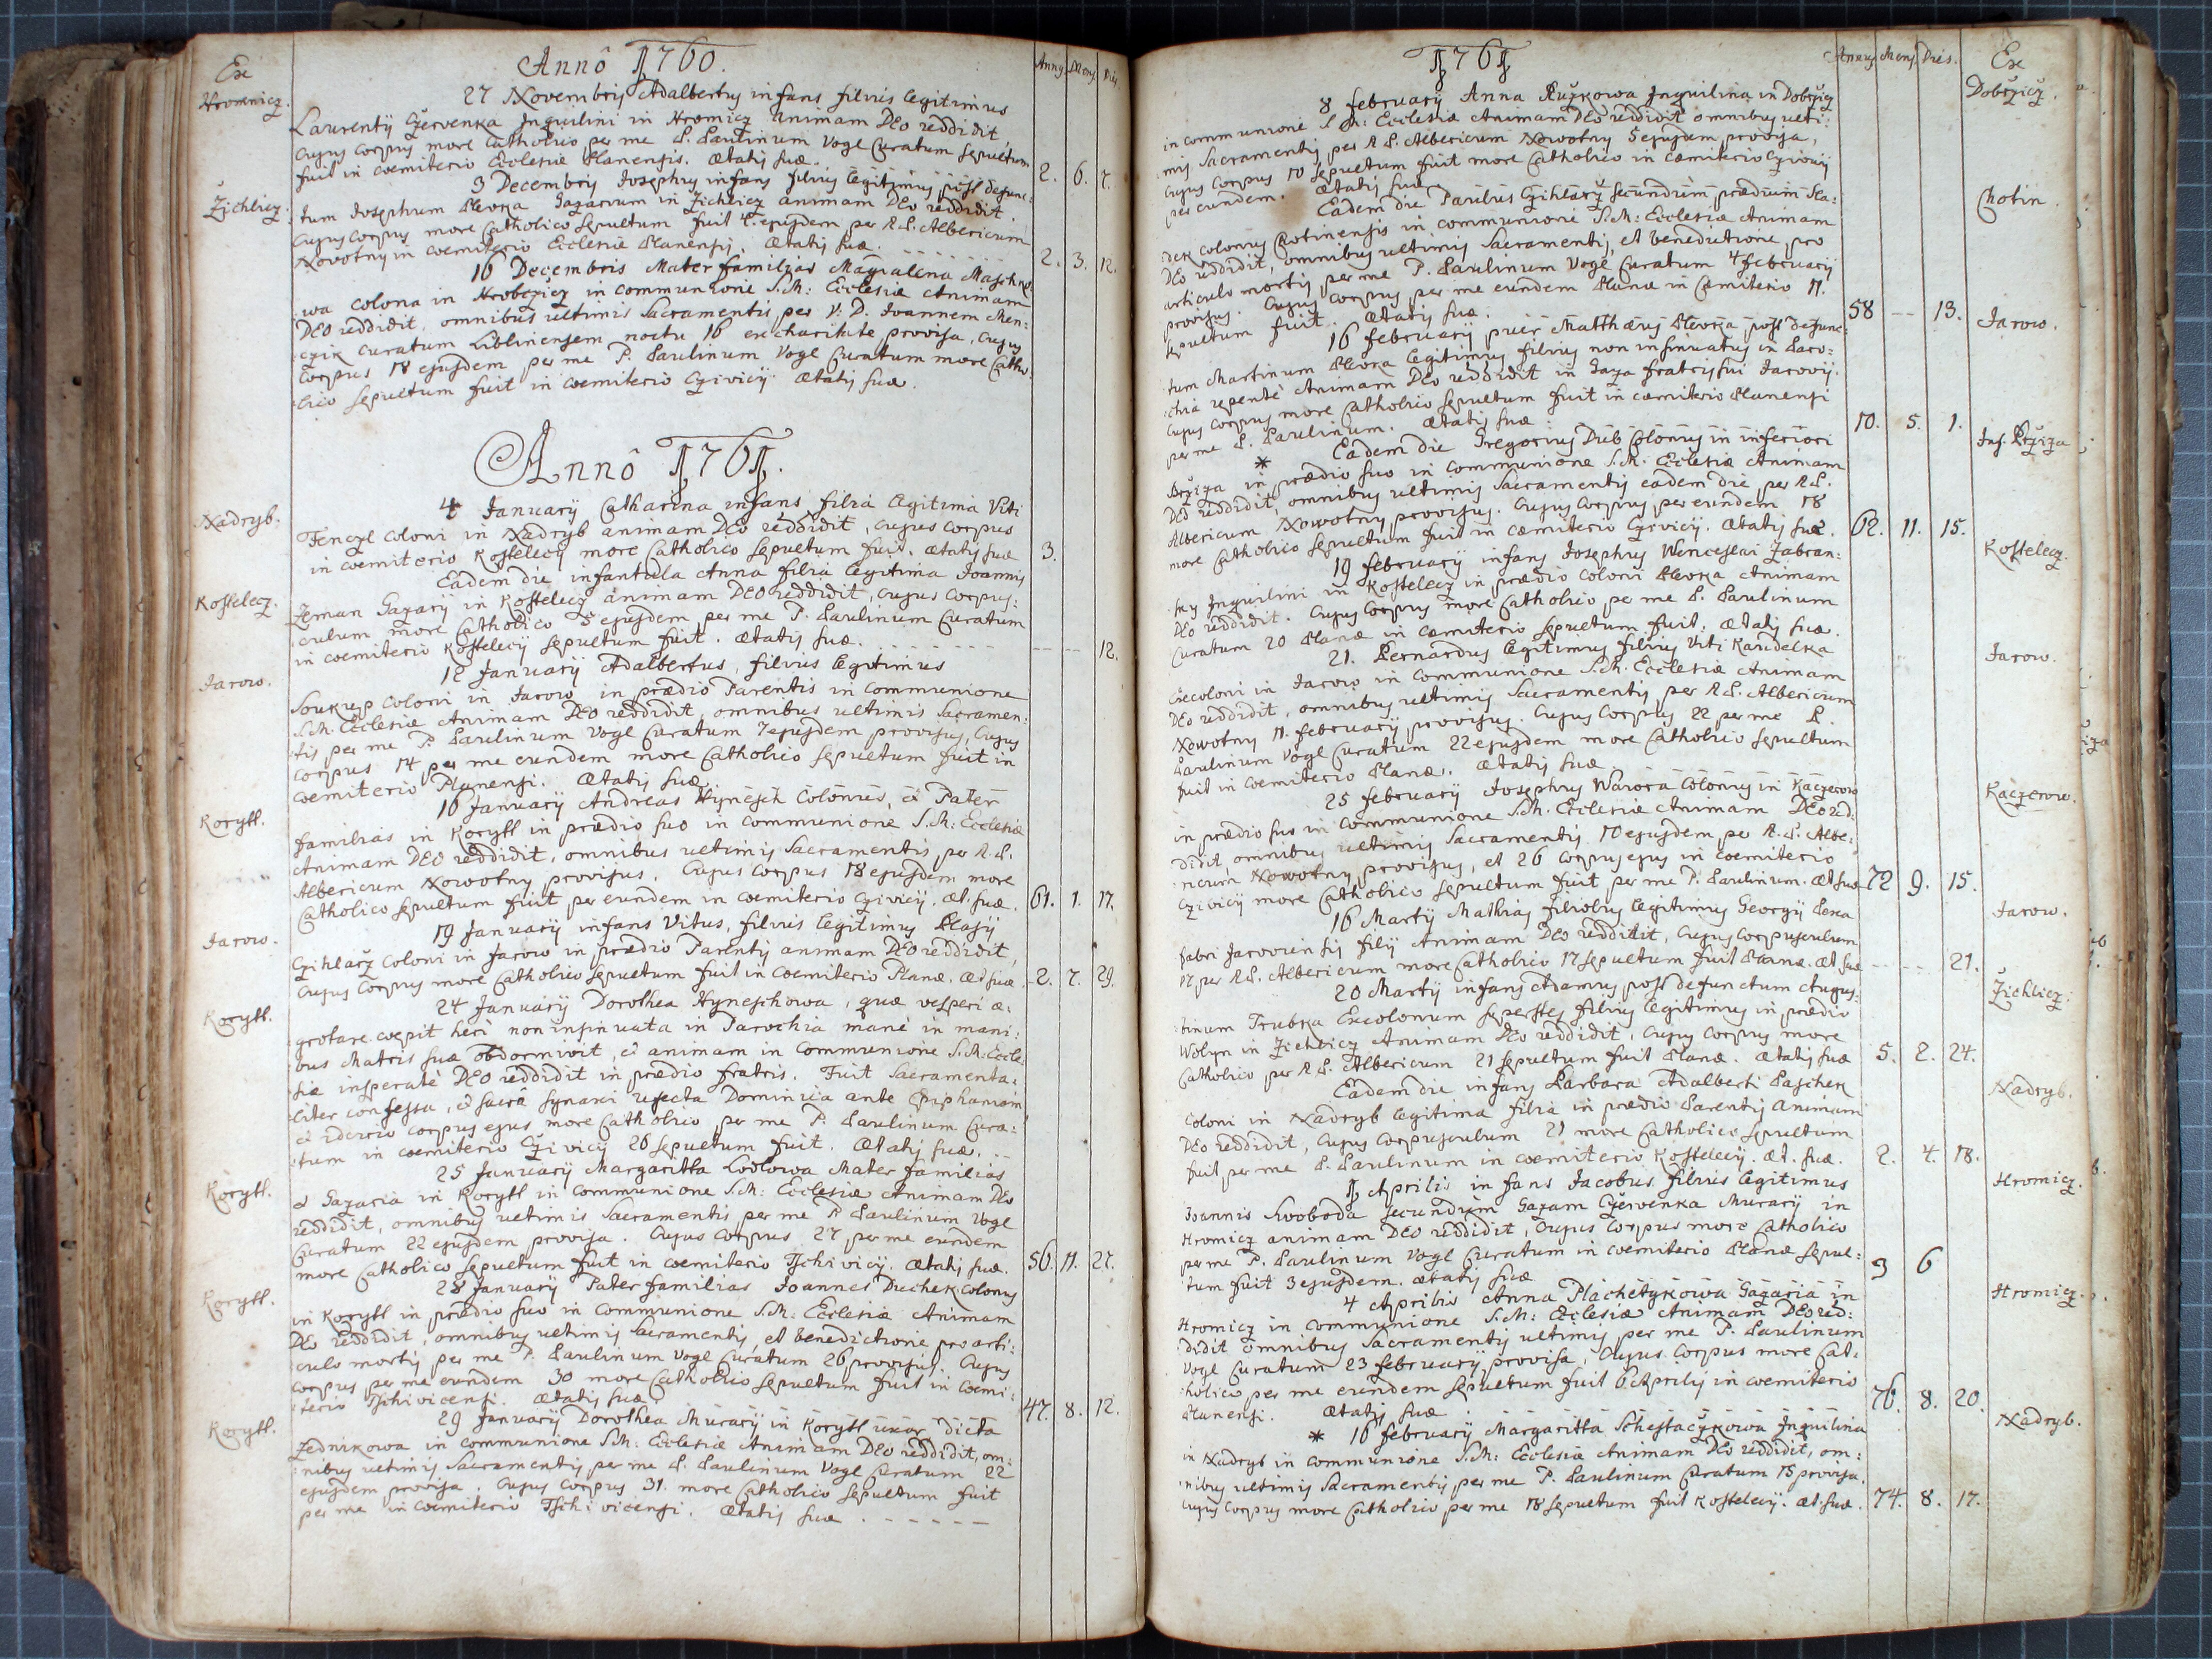 Ex
Annô 1760.
Anny Mens. Dies
Hromnicz.
27 Novembris Adalbertus infans filius legitimus
Laurentij Czervenka Inquilini in Hromicz animam DEo reddidit,
cujus corpus more Catholico per me P. Paulinum Vogl Curatum sepultum
fuit in coemiterio Ecclesiæ Planensis. Ætatis suæ. 2. 6. 7.
Zichlicz.
3 Decembris Josephus infans filius legitimus post defunc:
tum Josephum Plevka Gazarum in Zichlicz animam DEo reddidit.
Cujus corpus more Catholico sepultum fuit 4. ejusdem per R.P. Albericum
Novotny in coemiterio Ecclesiæ Planensis. Ætatis suæ. 2. 3. 12.
16 Decembris Mater familias Magdalena Maschko:
:wa colona in Hrobczicz in communione S.M: Ecclesiæ Animam
DEo reddidit, omnibus ultimis Sacramentis per V. D. Joannem Men:
:czik Curatum Liblinensem noctu 16 ex charitate provisa, cujus
corpus 18 ejusdem per me P. Paulinum Vogl Curatum more Catho:
:lico sepultum fuit in coemiterio Czivicij. Ætatis suæ.
Annô 1761.
Nadryb.
4 Januarij Catharina infans filia legitima Viti
Fenczl coloni in Nadryb animam DEo reddidit, cujus corpus
in coemiterio Kostelecij more Catholico sepultum fuit. Ætatis suæ 3.
Kostelecz.
Eadem die infantula Anna filia legitima Joannis
Zeman Gazarij in Kostelecz animam DEo reddidit, cujus corpus:
:culum more Catholico 5 ejusdem per me P. Paulinum Curatum
in coemiterio Kostelecij sepultum fuit. Ætatis suæ. 12.
Jarow.
12 Januarij Adalbertus, filius legitimus
Soukup coloni in Jarow in prædio Parentis in communione
S.M. Ecclesiæ Animam DEo reddidit, omnibus ultimis Sacramen:
:tis per me P. Paulinum Vogl Curatum 7 ejusdem provisus, cujus
corpus 14 per me eundem more Catholico sepultum fuit in
coemiterio Planensi. Ætatis suæ.
Korytl.
16 Januarij Andreas Hynesch Colonus, & Pater
familias in Korytl in prædio suo in communione S.M: Ecclesiæ
Animam DEo reddidit, omnibus ultimis Sacramentis per R.P.
Albericum Nowotny provisus. Cujus corpus 18 ejusdem more
Catholico sepultum fuit per eundem in coemiterio Czivicij. Æt. suæ. 61. 1. 17.
Jarow.
19 Januarij infans Vitus, filius legitimus Blasij
Czihlarž coloni in Jarow in prædio Parentis animam DEo reddidit,
cujus corpus more Catholico sepultum fuit in coemiterio Planæ. Æt. suæ. 2. 7. 29.
Korytl.
24 Januarij Dorothea Hyneschowa, quæ vesperi æ:
:grotare coepit heri non insinuata in Parochia manè in mani:
bus Matris suæ obdormivit, & animam in communione S.M: Eccle:
siæ insperatè DEo reddidit in prædio fratris. Fuit Sacramenta:
:liter confessa, & sacra synaxi refecta Dominica ante Epiphaniam
& idcirco corpus ejus more Catholico per me P. Paulinum Cura:
:tum in coemiterio Czivicij 26 sepultum fuit. Ætatis suæ.
Korytl.
25 Januarij Margaritta Lodlowa Mater familias
& Gazaria in Korytl in communione S.M: Ecclesiæ Animam DEo
reddidit, omnibus ultimis Sacramentis per me P. Paulinum Vogl
Curatum 22 ejusdem provisa. Cujus corpus 27 per me eundem
more Catholico sepultum fuit in coemiterio Tschivicij. Ætatis suæ. 56. 11. 27.
Korytl.
28 Januarij Pater familias Joannes Duchek Colonus
in Korytl in prædio suo in communione S.M: Ecclesiæ Animam
DEo reddidit, omnibus ultimis Sacramentis, et benedictione pro arti:
:culo mortis per me P. Paulinum Vogl Curatum 26 provisus. Cujus
corpus per me eundem 30 more Catholico sepultum fuit in coemi:
:terio Tschivicensi. Ætatis suæ 47. 8. 12.
Korytl.
29 Januarij Dorothea Murarij in Korytl uxor dicta
Zednikowa in communione S.M: Ecclesiæ Animam DEo reddidit, om:
:nibus ultimis Sacramentis per me P. Paulinum Vogl Curatum 22
ejusdem provisa. Cujus corpus 31. more Catholico sepultum fuit
per me in coemiterio Tschivicensi. Ætatis suæ
1761
Annus Mens. Dies. Ex
Dobrzicz.
8 februarij Anna Ružkowa Inquilina in Dobržicz
in communione S.M: Ecclesiæ Animam DEo reddidit omnibus ulti:
:mis Sacramentis per R.P. Albericum Nowotny 5 ejusdem provisa,
cujus corpus 10 sepultum fuit more Catholico in coemiterio Czivicij
per eundem. Ætatis suæ
Chotin.
Eadem die Paulus Czihlarž secundum prædium Sla:
:dek colonus Chotinensis in communione S.M: Ecclesiæ Animam
DEo reddidit, omnibus ultimis Sacramentis, et benedictione pro
articulo mortis per me P. Paulinum Vogl Curatum 4 februarij
provisus. Cujus corpus per me eundem Planæ in Coemiterio 11.
sepultum fuit. Ætatis suæ. 58 — 13.
Jarow.
16 februarij puer Matthæus Plevka post defunc:
:tum Martinum Plevka legitimus filius non insinuatus in Paro:
:chia repentè Animam DEo reddidit in Gaza fratris sui Jarovij.
Cujus corpus more Catholico sepultum fuit in coemiterio Planensi
per me P. Paulinum. Ætatis suæ: 10. 5. 1.
Inf. Bržiza
* Eadem die Gregorius Dub Colonus in inferiori
Bržiza in prædio suo in communione S.M. Ecclesiæ Animam
DEo reddidit, omnibus ultimis Sacramentis eadem die per R.P.
Albericum Nowotny provisus. Cujus corpus per eundem 18
more Catholico sepultum fuit in coemiterio Czivicij. Ætatis suæ. 62. 11. 15.
Kostelecz.
19 februarij infans Josephus Wenceslai Zabran:
:sky Inquilini in Kostelecz in prædio coloni Plevka Animam
DEo reddidit. Cujus corpus more Catholico per me P. Paulinum
Curatum 20 Planæ in coemiterio sepultum fuit: Ætatis suæ.
Jarow.
21. Bernardus legitimus filius Viti Kandelka
Excoloni in Jarow in communione S.M. Ecclesiæ Animam
DEo reddidit, omnibus ultimis Sacramentis per R.P. Albericum
Nowotny 11. februarij provisus. Cujus corpus 22 per me P.
Paulinum Vogl Curatum 22 ejusdem more Catholico sepultum
fuit in coemiterio Planæ. Ætatis suæ
Kaczerow.
25 februarij Josephus Warora Colonus in Kaczerow
in prædio suo in communione S.M. Ecclesiæ Animam DEo red:
:didit, omnibus ultimis Sacramentis 10 ejusdem per R.P. Albe:
:ricum Nowotny provisus, et 26 corpus ejus in coemiterio
Czivicij more Catholico sepultum fuit per me P. Paulinum. Æt. suæ 72 9. 15.
Jarow.
16 Martij Mathias filiolus legitimus Georgij Pexa
fabri Jarowiensis filij Animam DEo reddidit, cujus corpusculum
17 per R.P. Albericum more Catholico 17 sepultum fuit Planæ. Æt. suæ 21.
Zichlicz.
20 Martij infans Adamus post defunctum Augus:
:tinum Trubka Excolonum superstes filius legitimus in prædio
Wolyn in Zichlicz Animam DEo reddidit, cujus corpus more
Catholico per R.P. Albericum 21 sepultum fuit Planæ. Ætatis suæ 5. 2. 24.
Nadryb.
Eadem die infans Barbara Adalberti Paschek
coloni in Nadryb legitima filia in prædio Parentis animam
DEo reddidit, cujus corpusculum 21 more Catholico sepultum
fuit per me P. Paulinum in coemiterio Kostelecij. Æt. suæ. 2. 4. 18.
Hromicz.
1 Aprilis infans Jacobus filius legitimus
Joannis Swoboda secundum Gazam Czervenka Murarij in
Hromicz animam DEo reddidit, Cujus corpus more Catholico
per me P. Paulinum Vogl Curatum in coemiterio Planæ sepul:
tum fuit 3 ejusdem. Ætatis suæ 3 6
Hromicz.
4 Aprilis Anna Plachetykowa Gazaria in
Hromicz in communione S.M: Ecclesiæ Animam DEo red:
:didit omnibus Sacramentis ultimis per me P. Paulinum
Vogl Curatum 23 februarij provisa, Cujus corpus more Cat:
:holico per me eundem sepultum fuit 6 Aprilis in coemiterio
Planensi. Ætatis suæ 76. 8. 20.
Nadryb.
* 16 februarij Margaritta Schestaczykowa Inquilina
in Nadryb in communione S.M: Ecclesiæ Animam DEo reddidit, om:
:nibus ultimis Sacramentis per me P. Paulinum Curatum 15 provisa.
Cujus corpus more Catholico per me 18 sepultum fuit Kostelecij. Æt. suæ. 74. 8. 17.